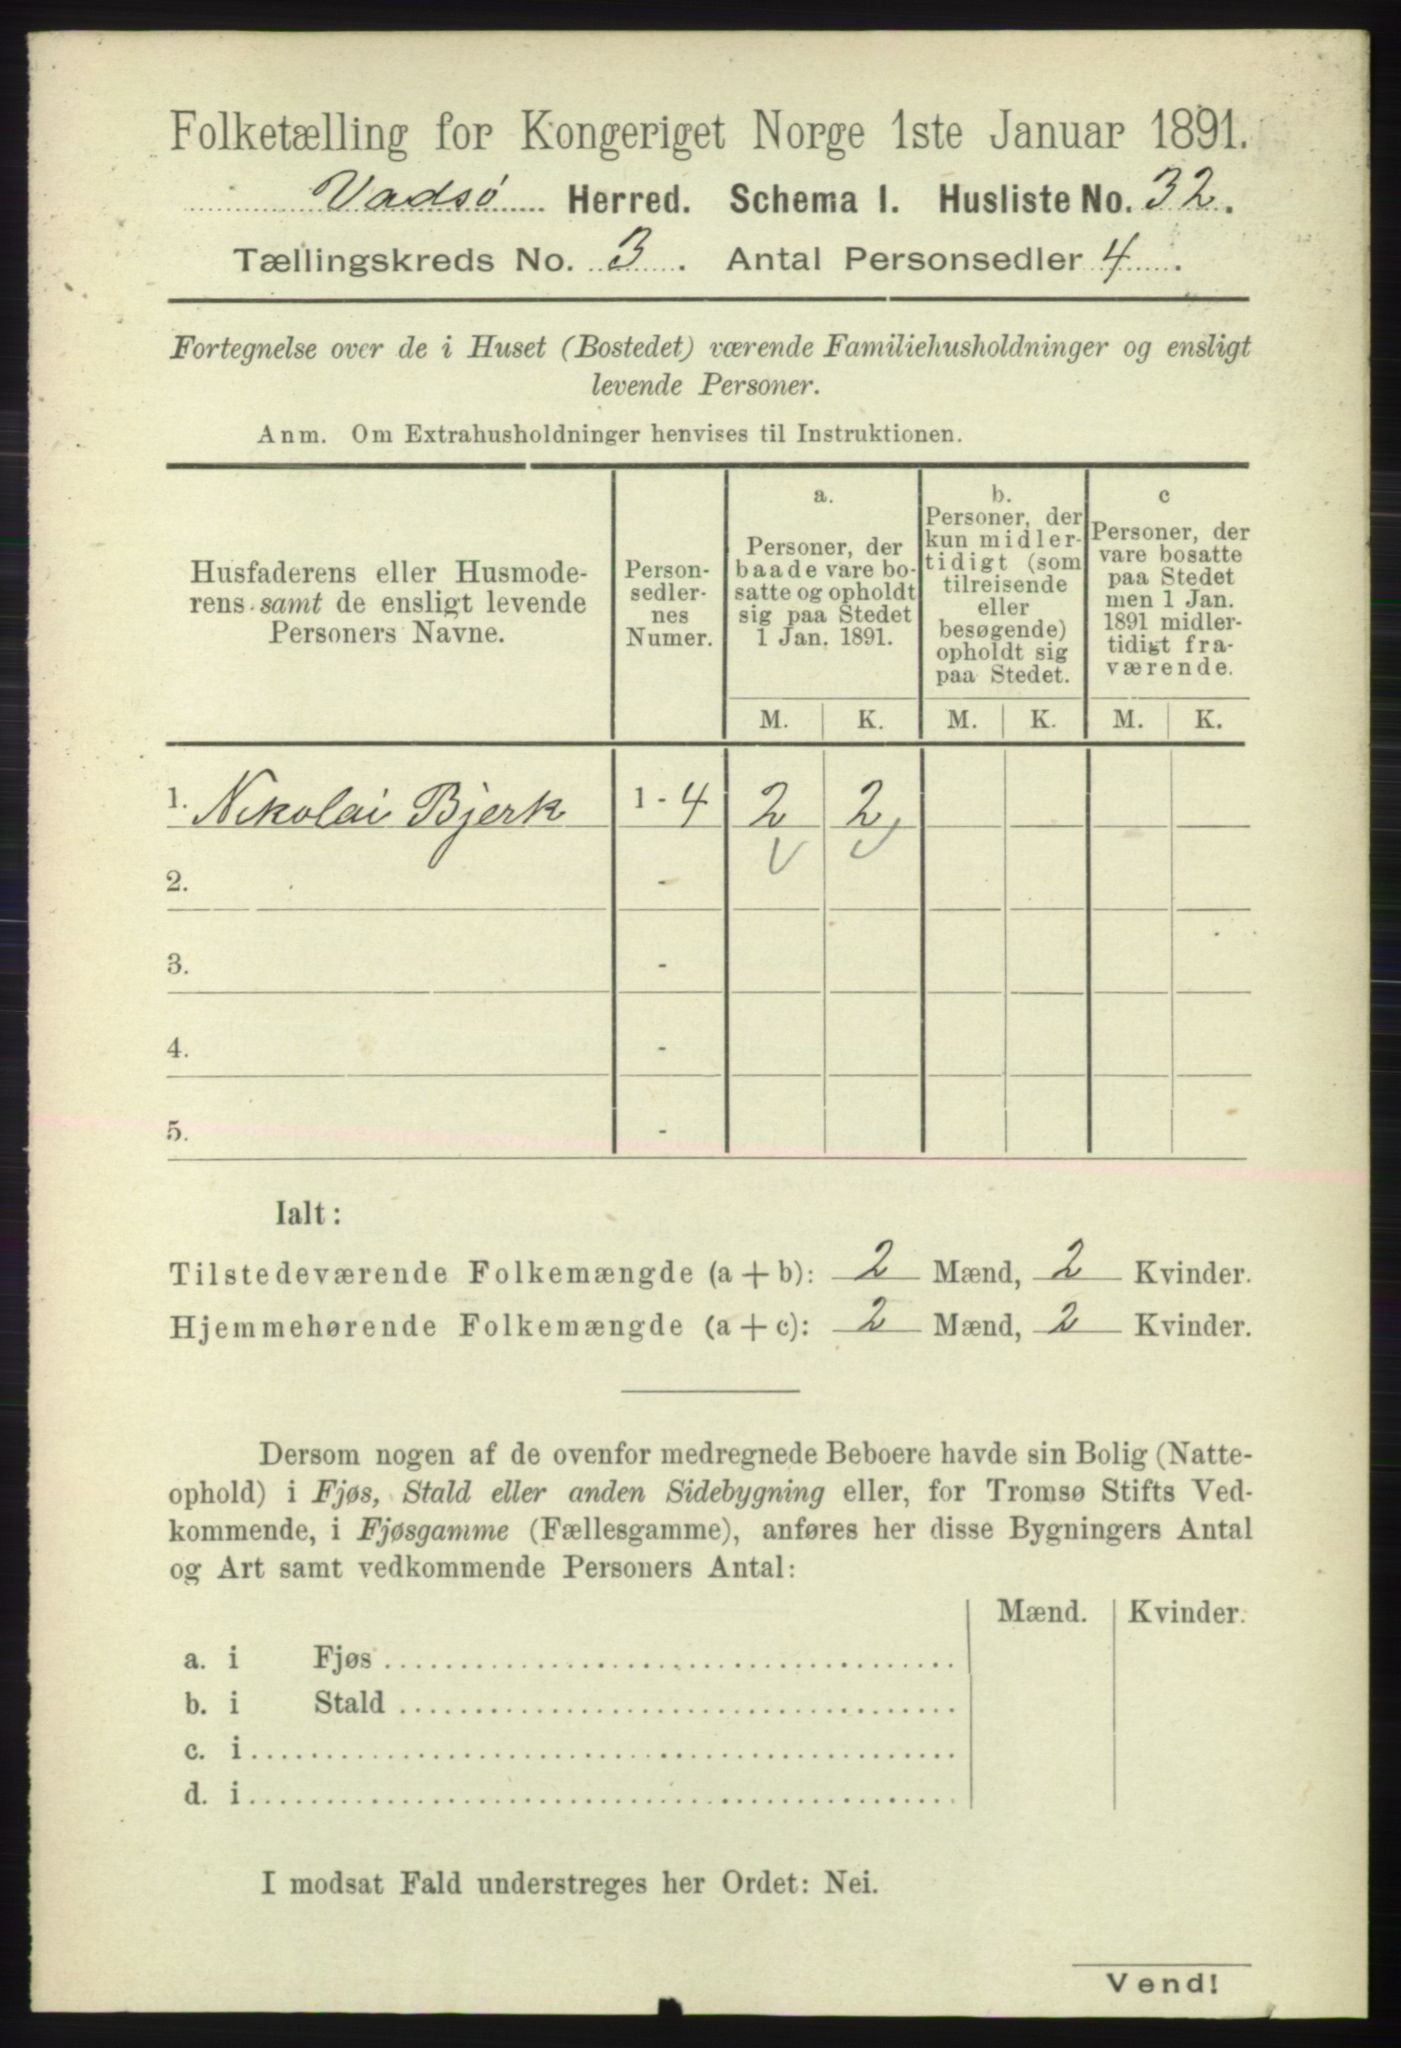 Folketælling for Kongeriget Norge 1ste Januar 1891.
Vadsø Herred. Schema I. Husliste No. 32.
Tællingskreds No. 3. Antal Personsedler 4.
Fortegnelse over de i Huset (Bostedet) værende Familiehusholdninger og ensligt
levende Personer.
Anm. Om Extrahusholdninger henvises til Instruktionen.
Husfaderens eller Husmode-
rens samt de ensligt levende
Personers Navne.
Person-
sedler-
nes
Numer.
a.
Personer, der
baade vare bo-
satte og opholdt
sig paa Stedet
1 Jan. 1891.
b.
Personer, der
kun midler-
tidigt (som
tilreisende
eller
besøgende)
opholdt sig
paa Stedet.
c
Personer, der
vare bosatte
paa Stedet
men 1 Jan.
1891 midler-
tidigt fra-
værende.
M. K. M. K. M. K.
1. Nikolai Bjerk 1 - 4 2 2
2. -
3. -
4. -
5. -
Ialt:
Tilstedeværende Folkemængde (a + b): 2 Mænd, 2 Kvinder.
Hjemmehørende Folkemængde (a + c): 2 Mænd, 2 Kvinder.
Dersom nogen af de ovenfor medregnede Beboere havde sin Bolig (Natte-
ophold) i Fjøs, Stald eller anden Sidebygning eller, for Tromsø Stifts Ved-
kommende, i Fjøsgamme (Fællesgamme), anføres her disse Bygningers Antal
og Art samt vedkommende Personers Antal:
Mænd. Kvinder.
a. i Fjøs
b. i Stald
c. i
d. i
I modsat Fald understreges her Ordet: Nei.
Vend!